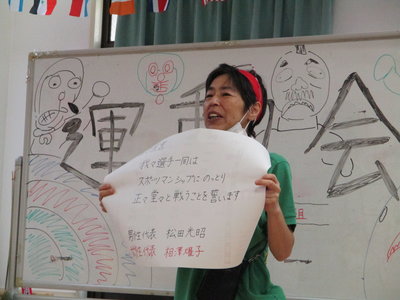 運動会
宣誓
我々選手一同は
スポーツマンシップにのっとり
正々堂々と戦うことを誓います
男性代表 松田光昭
女性代表 相澤燿子